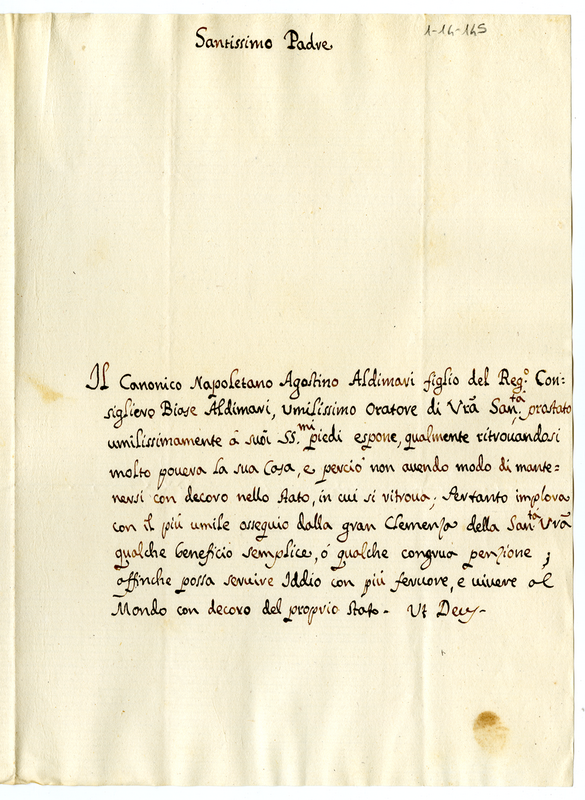 1-14-145
Santissimo Padre
Il Canonico Napoletano Agostino Aldimari figlio del Reg.º Con:
sigliero Biase Aldimari, umilissimo Oratore di Vrã San.tà prostato
umilissimamente à suoi SS.mi piedi espone, qualmente ritrovandosi
molto povera la sua Casa, e perciò non avendo modo di mante=
nersi con decoro nello stato, in cui si vitrova; Pertanto implora
con il più umile ossequio dalla gran Clemenza della San.tà Vrã
qualche beneficio semplice, ó qualche congrua penzione;
affinche possa servire Iddio con più fervore, e vivere al
Mondo con decoro del proprio stato. Ut Deus